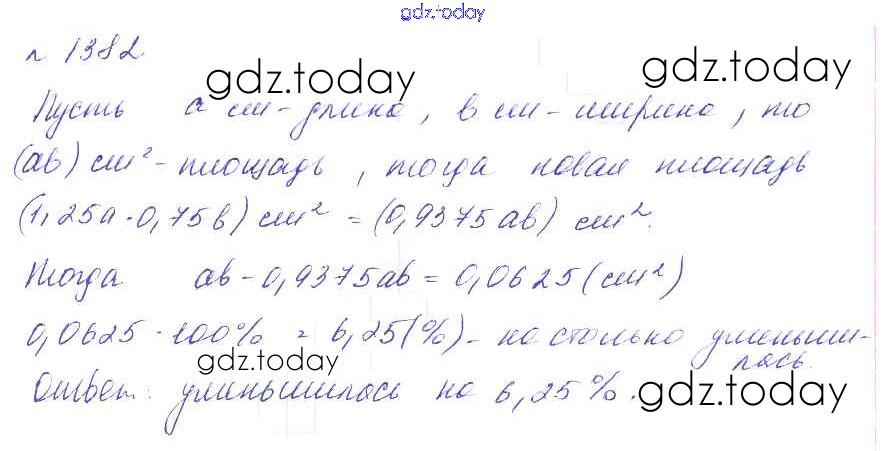 gdz.today
№ 1382.
gdz.today
gdz.today
Пусть a см - длина, в см - ширина, то
(ав) см² - площадь, тогда новая площадь
(1,25а · 0,75в) см² = (0,9375ав) см².
Тогда ав - 0,9375ав = 0,0625 (см²)
0,0625 · 100% = 6,25(%) - на столько уменьши-
лась.
gdz.today
gdz.today
Ответ: уменьшилась на 6,25%.